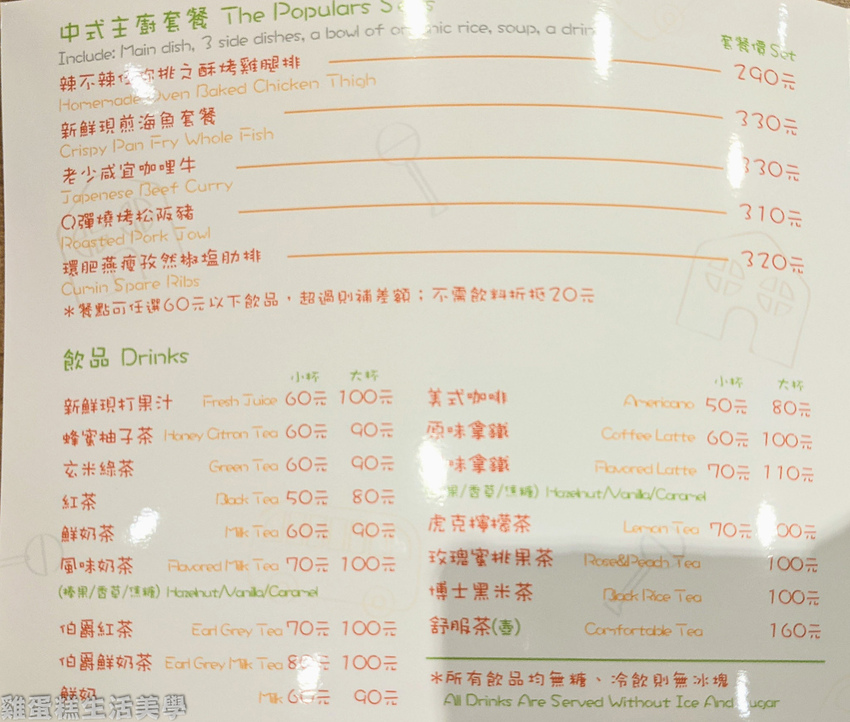 中式主廚套餐 The Populars
Include: Main dish, 3 side dishes, a bowl of organic rice, soup, a drink
套餐價 Set
辣不辣 挑之酥烤雞腿排 290元
Homemade Oven Baked Chicken Thigh
新鮮現煎海魚套餐 330元
Crispy Pan Fry Whole Fish
老少咸宜咖哩牛 330元
Japenese Beef Curry
Q彈燒烤松阪豬 310元
Roasted Pork Jowl
環肥燕瘦孜然椒塩肋排 320元
Cumin Spare Ribs
*餐點可任選60元以下飲品，超過則補差額；不需飲料折抵20元
飲品 Drinks
小杯 大杯
新鮮現打果汁 Fresh Juice 60元 100元
蜂蜜柚子茶 Honey Citron Tea 60元 90元
玄米綠茶 Green Tea 60元 90元
紅茶 Black Tea 50元 80元
鮮奶茶 Milk Tea 60元 90元
風味奶茶 Flavored Milk Tea 70元 100元
(榛果/香草/焦糖) Hazelnut/Vanilla/Caramel
伯爵紅茶 Earl Grey Tea 70元 100元
伯爵鮮奶茶 Earl Grey Milk Tea 元 100元
鮮奶 Milk 60元 90元
小杯 大杯
美式咖啡 Americano 50元 80元
原味拿鐵 Coffee Latte 60元 100元
味拿鐵 Flavored Latte 70元 110元
果/香草/焦糖) Hazelnut/Vanilla/Caramel
虎克檸檬茶 Lemon Tea 70元 00元
玫瑰蜜桃果茶 Rose&Peach Tea 100元
博士黑米茶 Black Rice Tea 100元
舒服茶(壺) Comfortable Tea 160元
*所有飲品均無糖、冷飲則無冰塊
All Drinks Are Served Without Ice And Sugar
雞蛋糕生活美學